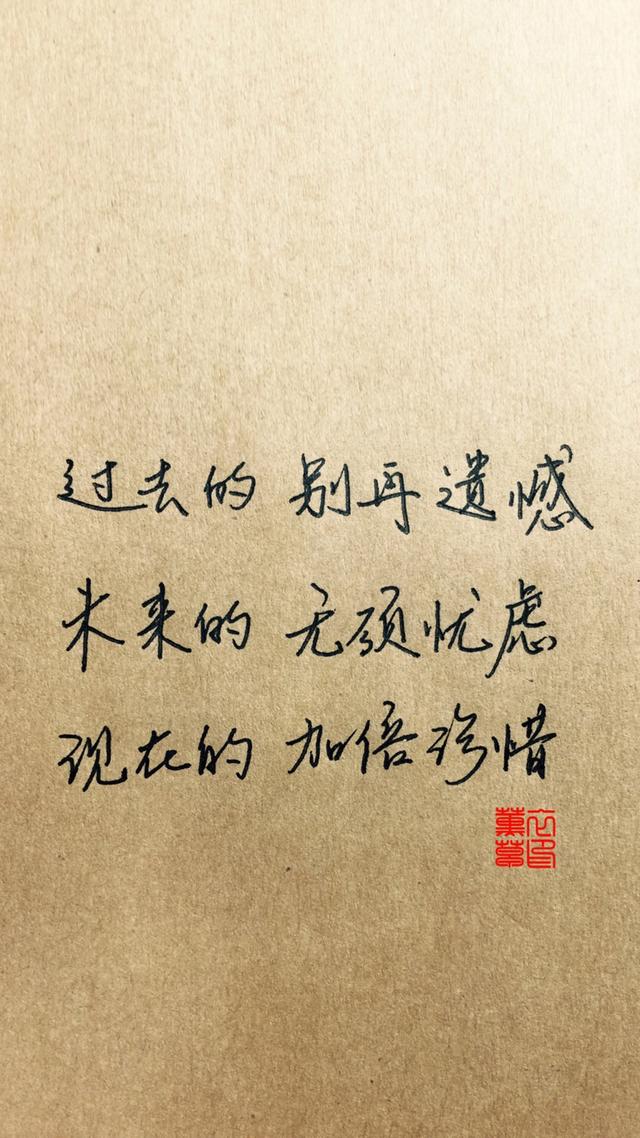 过去的 别再遗憾
未来的 无须忧虑
现在的 加倍珍惜
薰衣
草印